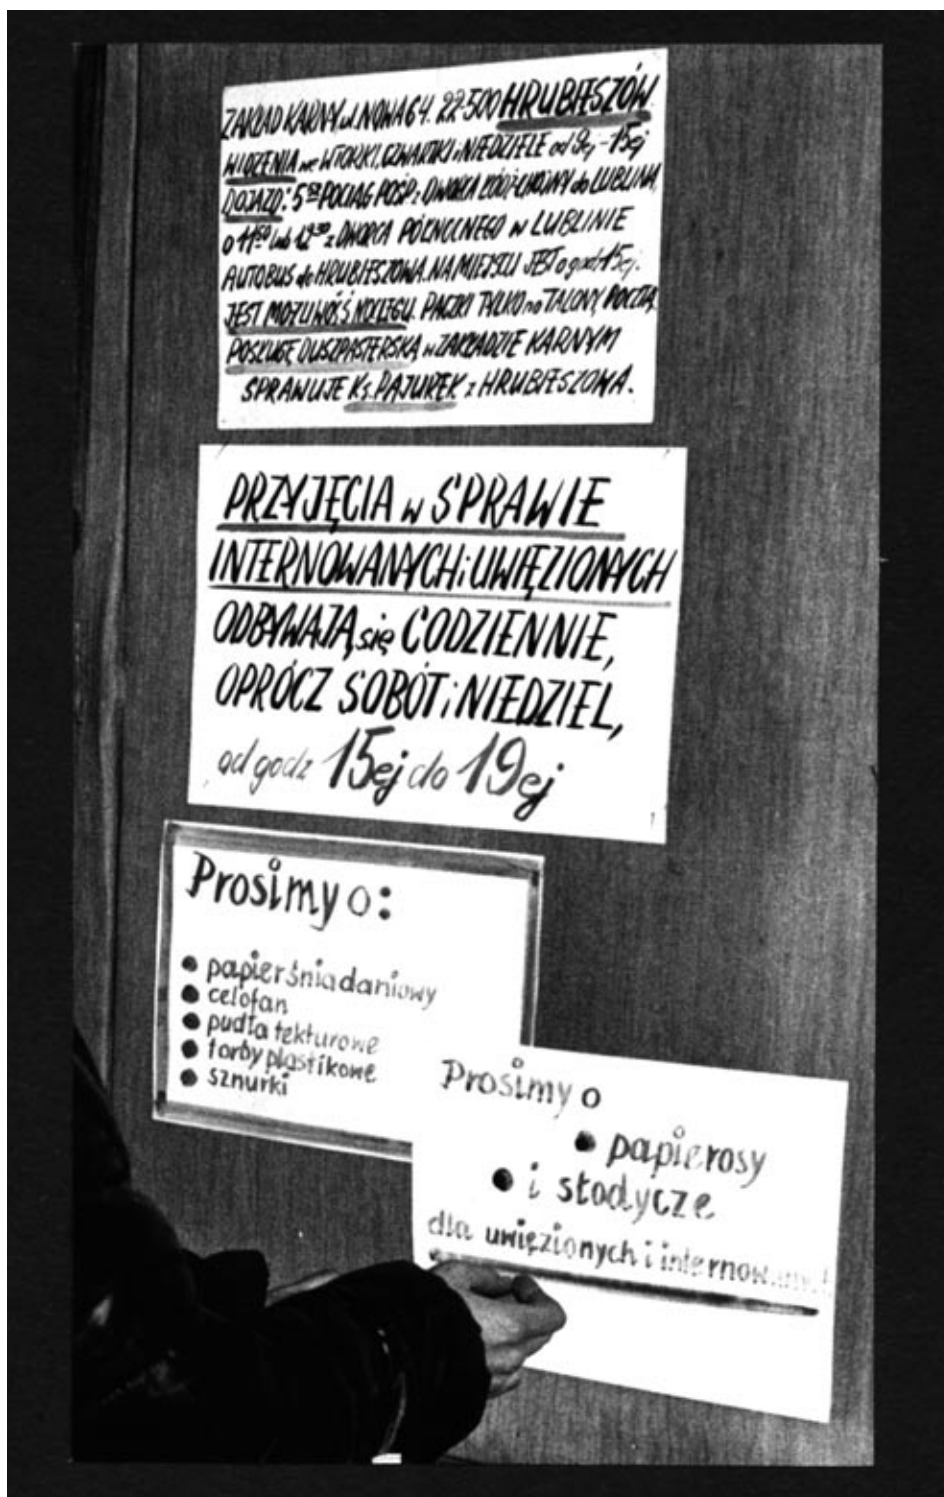 ZAKŁAD KARNY ul. NOWA 64. 22-500 HRUBIESZÓW.
WIDZENIA we WTORKI, CZWARTKI i NIEDZIELE od 9ej - 15ej
DOJAZD: 5 POCIĄG POŚP. z DWORCA ŁÓDŹ-CHOJNY do LUBLINA,
o 11⁵⁰ lub 12³⁰ z DWORCA PÓŁNOCNEGO w LUBLINIE
AUTOBUS do HRUBIESZOWA. NA MIEJSCU JEST o godz 15ej.
JEST MOŻLIWOŚĆ NOCLEGU. PACZKI TYLKO na TALONY, POCZTĄ.
POSŁUGĘ DUSZPASTERSKĄ w ZAKŁADZIE KARNYM
SPRAWUJE Ks. PAJUREK z HRUBIESZOWA.
PRZYJĘCIA w SPRAWIE
INTERNOWANYCH i UWIĘZIONYCH
ODBYWAJĄ się CODZIENNIE,
OPRÓCZ SOBÓT i NIEDZIEL,
od godz 15ej do 19ej
Prosimy o:
● papier śniadaniowy
● celofan
● pudła tekturowe
● torby plastikowe
● sznurki
Prosimy o
● papierosy
● i słodycze
dla uwięzionych i internowanych